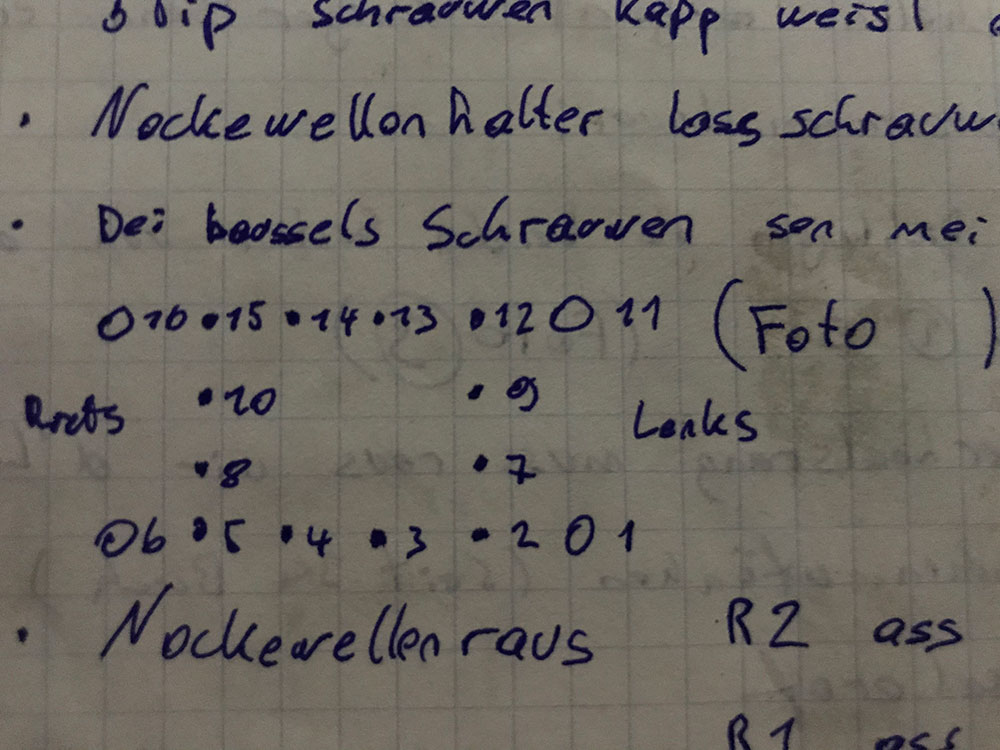 schrauwen Kapp weist
• Nockewellonhalter loss schrauw
• Dei baussels Schrauwen sen mei
O 16 •15 •14 •13 •12 O 11 (Foto )
Riets •10 •9 Lenks
•8 •7
O6 •5 •4 •3 •2 O 1
• Nockewellen raus R2 ass
R1 ass